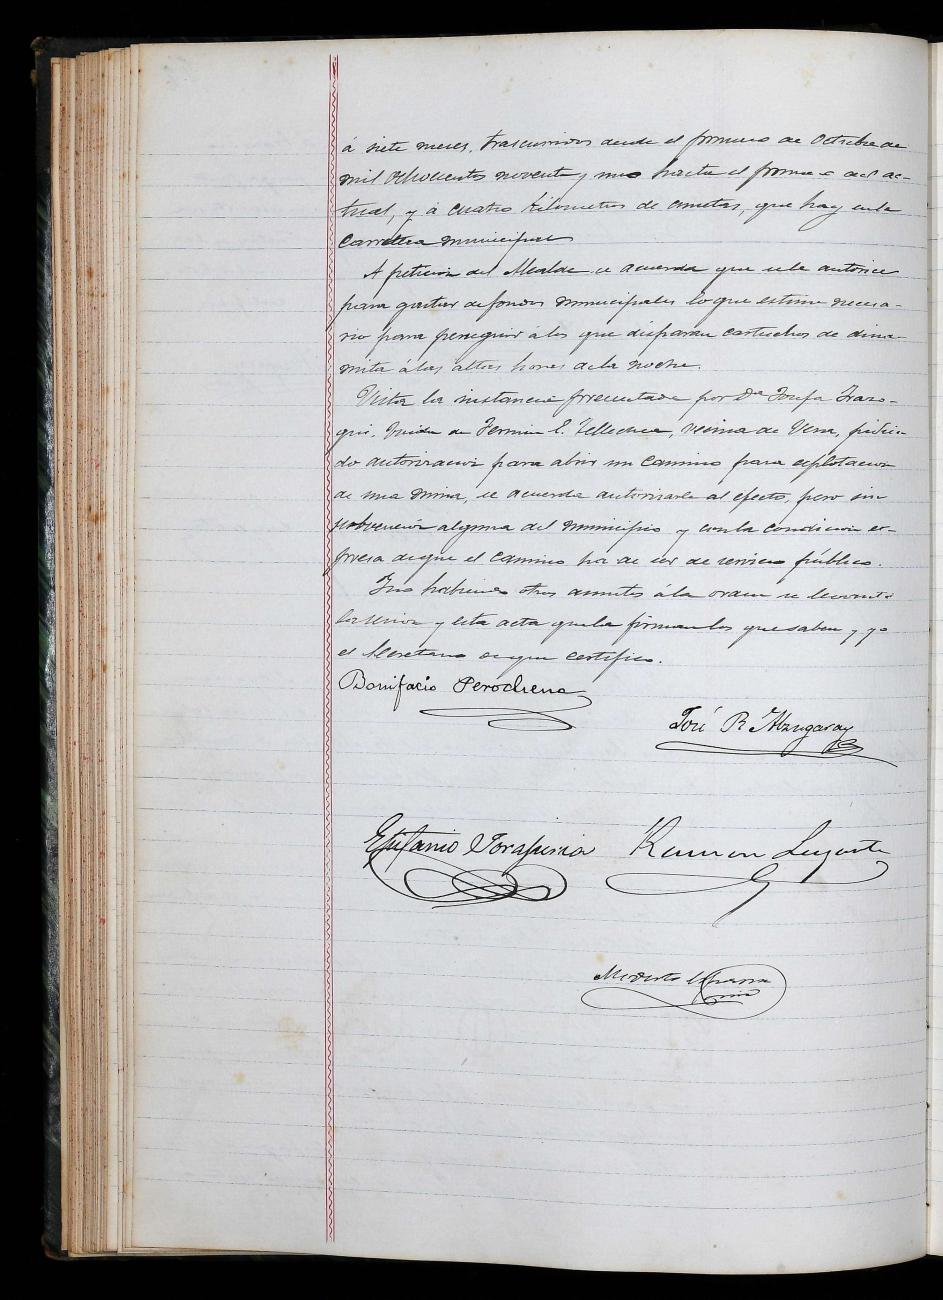 á siete meses, trascurridos desde el primero de Octubre de
mil ochocientos noventa y uno hasta el primero del ac-
tual, y á cuatro kilometros de cunetas, que hay en la
carretera municipal
A peticion del Alcalde se acuerda que se le autorice
para gastar de fondos municipales lo que estime necesa-
rio para perseguir á los que disparan cartuchos de dina-
mita á las altas horas de la noche.
Vista la instancia presentada por Dª Josefa Irazo-
qui, viuda de Fermin E. Tellechea, vecina de Vera, pidien-
do autorizacion para abrir un camino para esplotacion
de una mina, se acuerda autorizarle al efecto, pero sin
subvencion alguna del municipio y con la condicion es-
presa de que el camino ha de ser de servicio público.
Y no habiendo otros asuntos á la orden se levantó
la sesion y esta acta que la firman los que saben y yo
el Secretario de que certifico.
Bonifacio Perochena
José R Alzugaray
Epifanio
Ramon Lugarte
Modesto Esparza